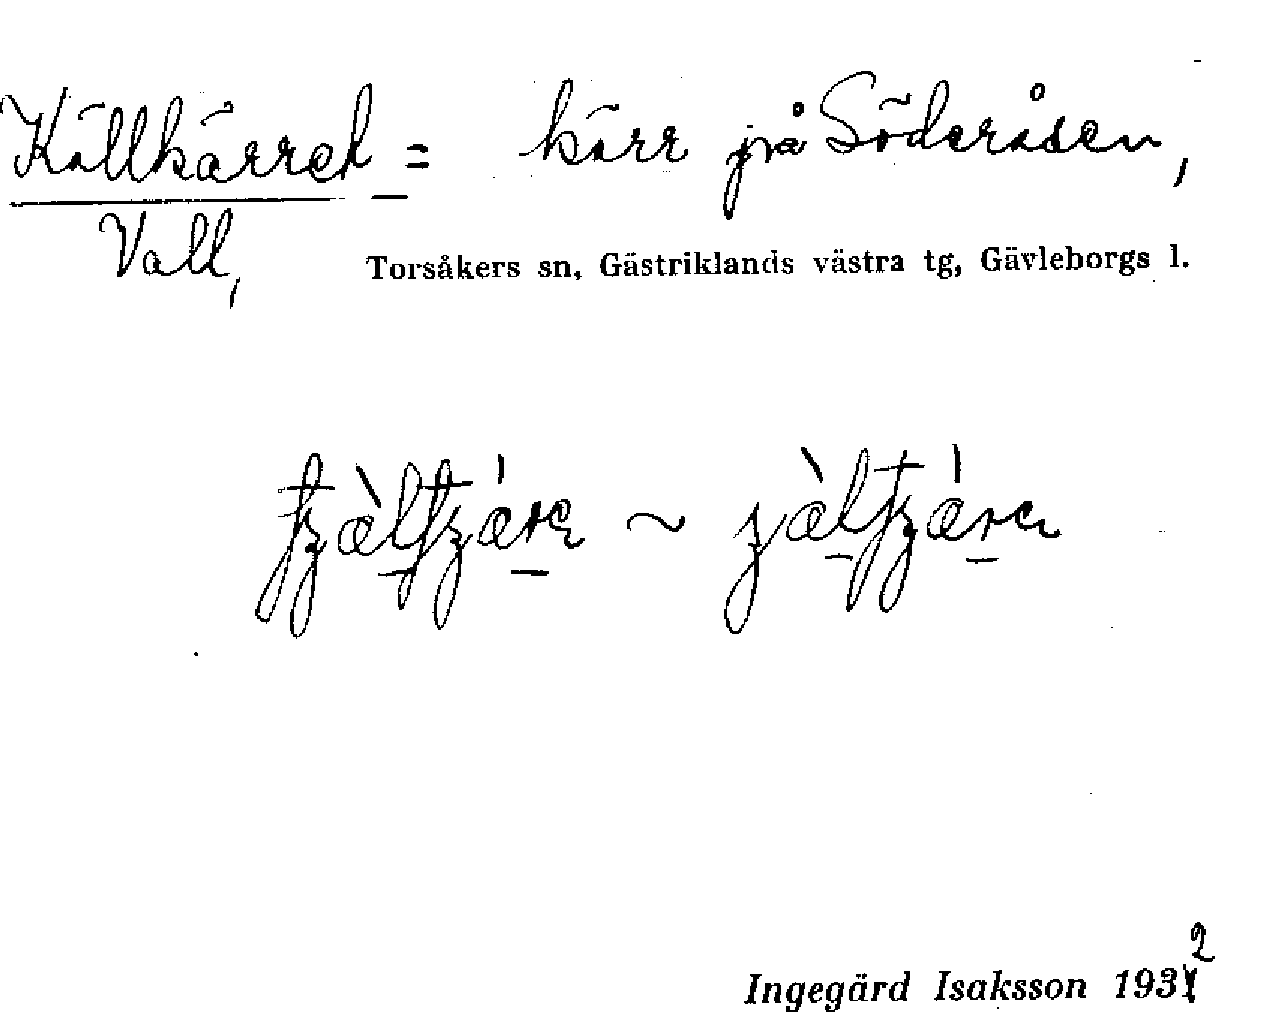 Källkärret = kärr på Söderåsen,
Vall,
Torsåkers sn, Gästriklands västra tg, Gävleborgs l.
~
2
Ingegärd Isaksson 1931